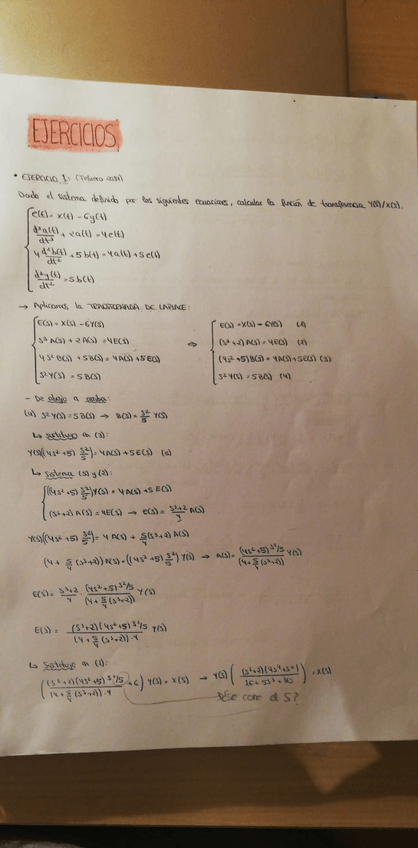 EJERCICIOS
• EJERCICIO 1: (Febrero
Dado el sistema definido por las siguientes ecuaciones, calcular la función de transferencia Y(s)/X(s).
e(t) = x(t) - 6y(t)
d³a(t)/dt³ + 2a(t) = 4e(t)
4 d²b(t)/dt² + 5b(t) = 4a(t) + 5e(t)
d²y(t)/dt² = 5b(t)
→ Aplicamos la TRANSFORMADA DE LAPLACE:
E(s) = X(s) - 6Y(s) ⇒ E(s) = X(s) - 6Y(s) (1)
s³A(s) + 2A(s) = 4E(s) (s³+2)A(s) = 4E(s) (2)
4s²B(s) + 5B(s) = 4A(s) + 5E(s) (4s²+5)B(s) = 4A(s) + 5E(s) (3)
s²Y(s) = 5B(s) s²Y(s) = 5B(s) (4)
- De abajo a arriba:
(4) s²Y(s) = 5B(s) → B(s) = s²/5 Y(s)
↳ sustituyo en (3):
Y(s)((4s²+5) s²/5) = 4A(s) + 5E(s)
↳ sistema (5) y (2):
((4s²+5) s²/5)Y(s) = 4A(s) + 5E(s)
(s³+2)A(s) = 4E(s) → E(s) = s³+2/4 A(s)
Y(s)((4s²+5) s²/5) = 4A(s) + 5/4 (s³+2)A(s)
(4 + 5/4 (s³+2))A(s) = ((4s²+5) s²/5) Y(s) → A(s) = (4s²+5) s²/5 / (4 + 5/4 (s³+2)) Y(s)
E(s) = s³+2/4 · (4s²+5) s²/5 / (4 + 5/4 (s³+2)) Y(s)
E(s) = (s³+2)(4s²+5) s²/5 / (4 + 5/4 (s³+2))·4 Y(s)
↳ Sustituyo en (1):
((s³+2)(4s²+5) s²/5 / (4 + 5/4 (s³+2))·4 + 6) Y(s) = X(s) → Y(s) ( (s³+2)(4s⁴+s²) / 16+5s³+10 ) = X(s)
el 5?